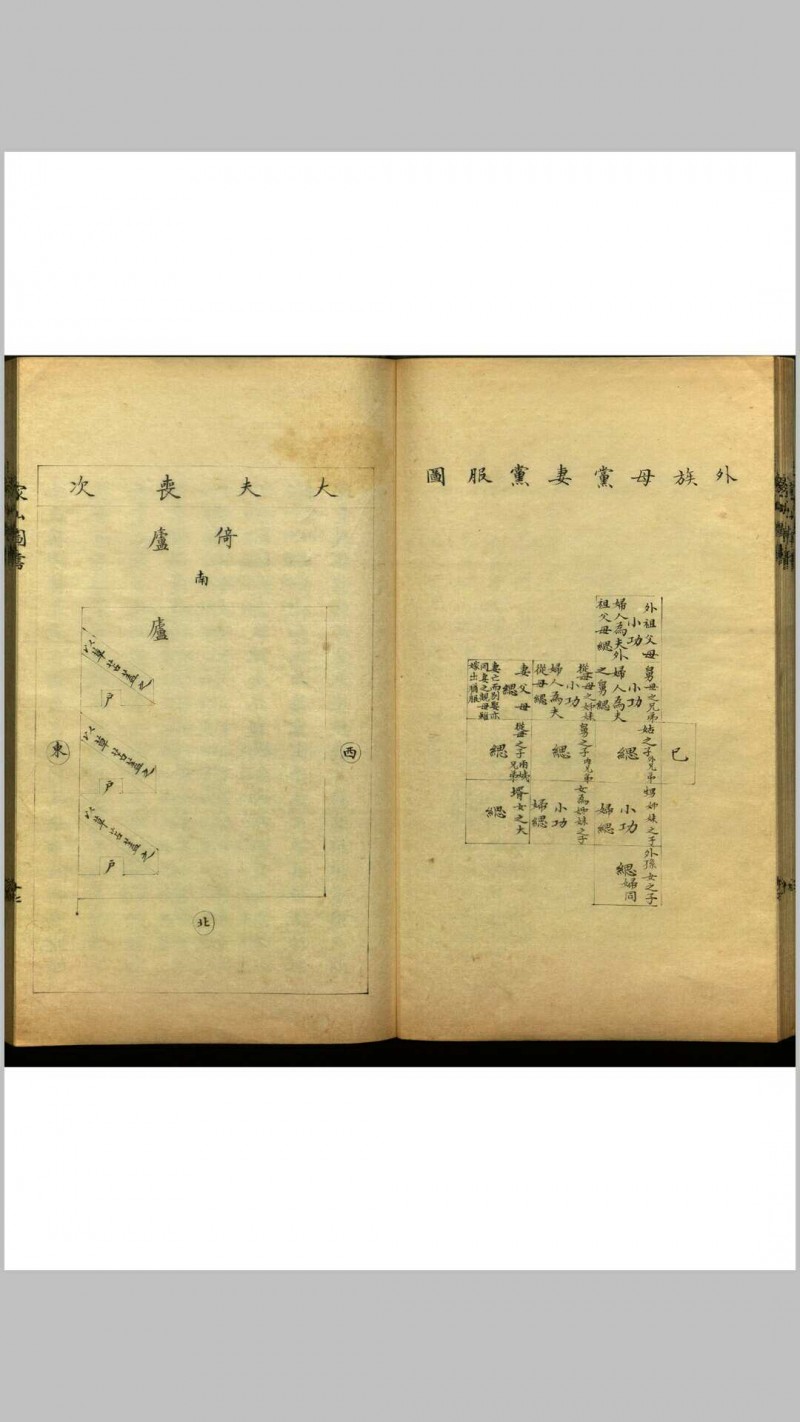 外族母黨妻黨服圖
外祖父母
小功
婦人為夫外
祖父母緦
舅母之兄弟
小功
婦人為夫
之舅緦
從母母之姊妹
小功
婦人為夫
從母緦
妻父母
緦
妻亡而別娶亦
同妻之親母雖
嫁出猶服
己
姑之子外兄弟
緦
舅之子內兄弟
緦
從母之子
兄弟
緦
甥姊妹之子
小功
婦緦
女為姊妹之子
小功
婦緦
壻女之夫
緦
外孫女之子
緦婦同
大夫喪次
倚廬
南
廬
以草苫蓋之
戶
以草苫蓋之
戶
以草苫蓋之
戶
東
西
北
家山圖書